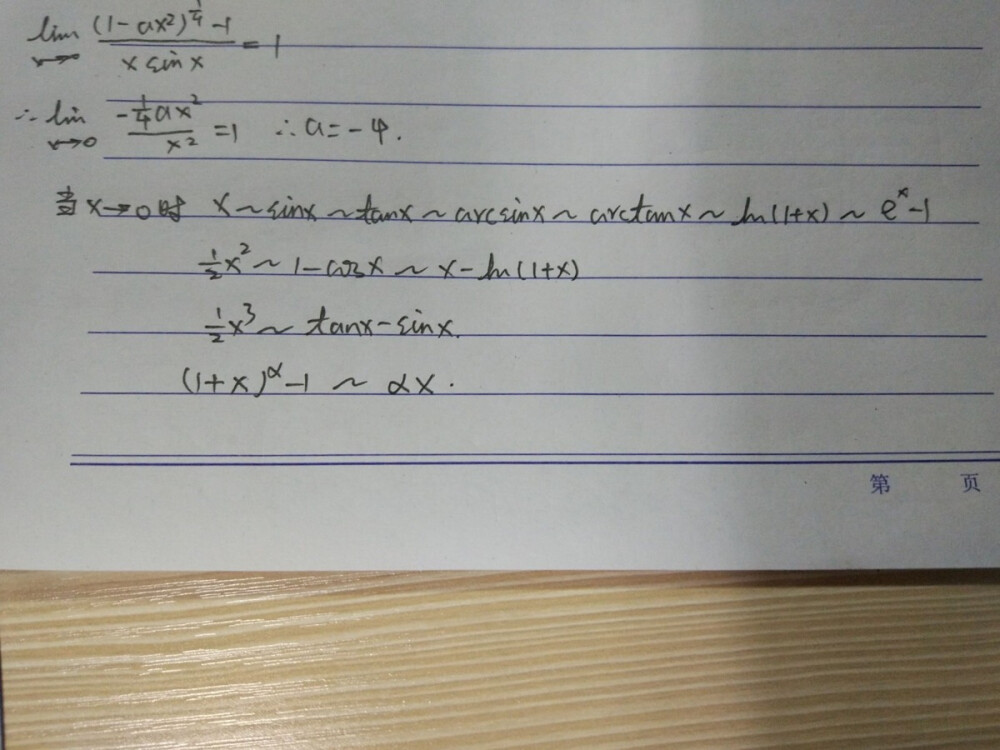 lim x→0 ((1-ax²)^(1/4) - 1)/(x sin x) = 1
∴ lim x→0 (-1/4 ax²)/(x²) = 1 ∴ a = -4.
当 x→0 时 x ~ sinx ~ tanx ~ arcsinx ~ arctanx ~ ln(1+x) ~ e^x-1
1/2 x² ~ 1-cosx ~ x-ln(1+x)
1/2 x³ ~ tanx-sinx.
(1+x)^α-1 ~ αx.
第 页